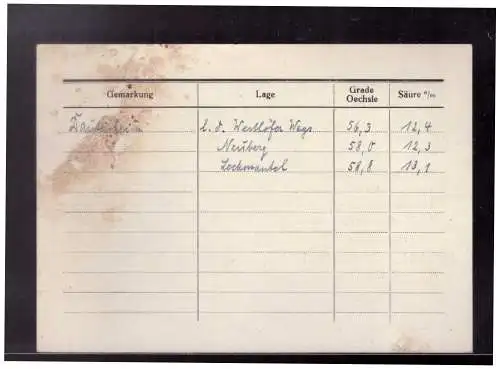 Gemarkung Lage Grade Oechsle Säure ‰
l. d. Westhofer Wegs 56,3 12,4
Neuberg 58,0 12,3
58,8 13,1